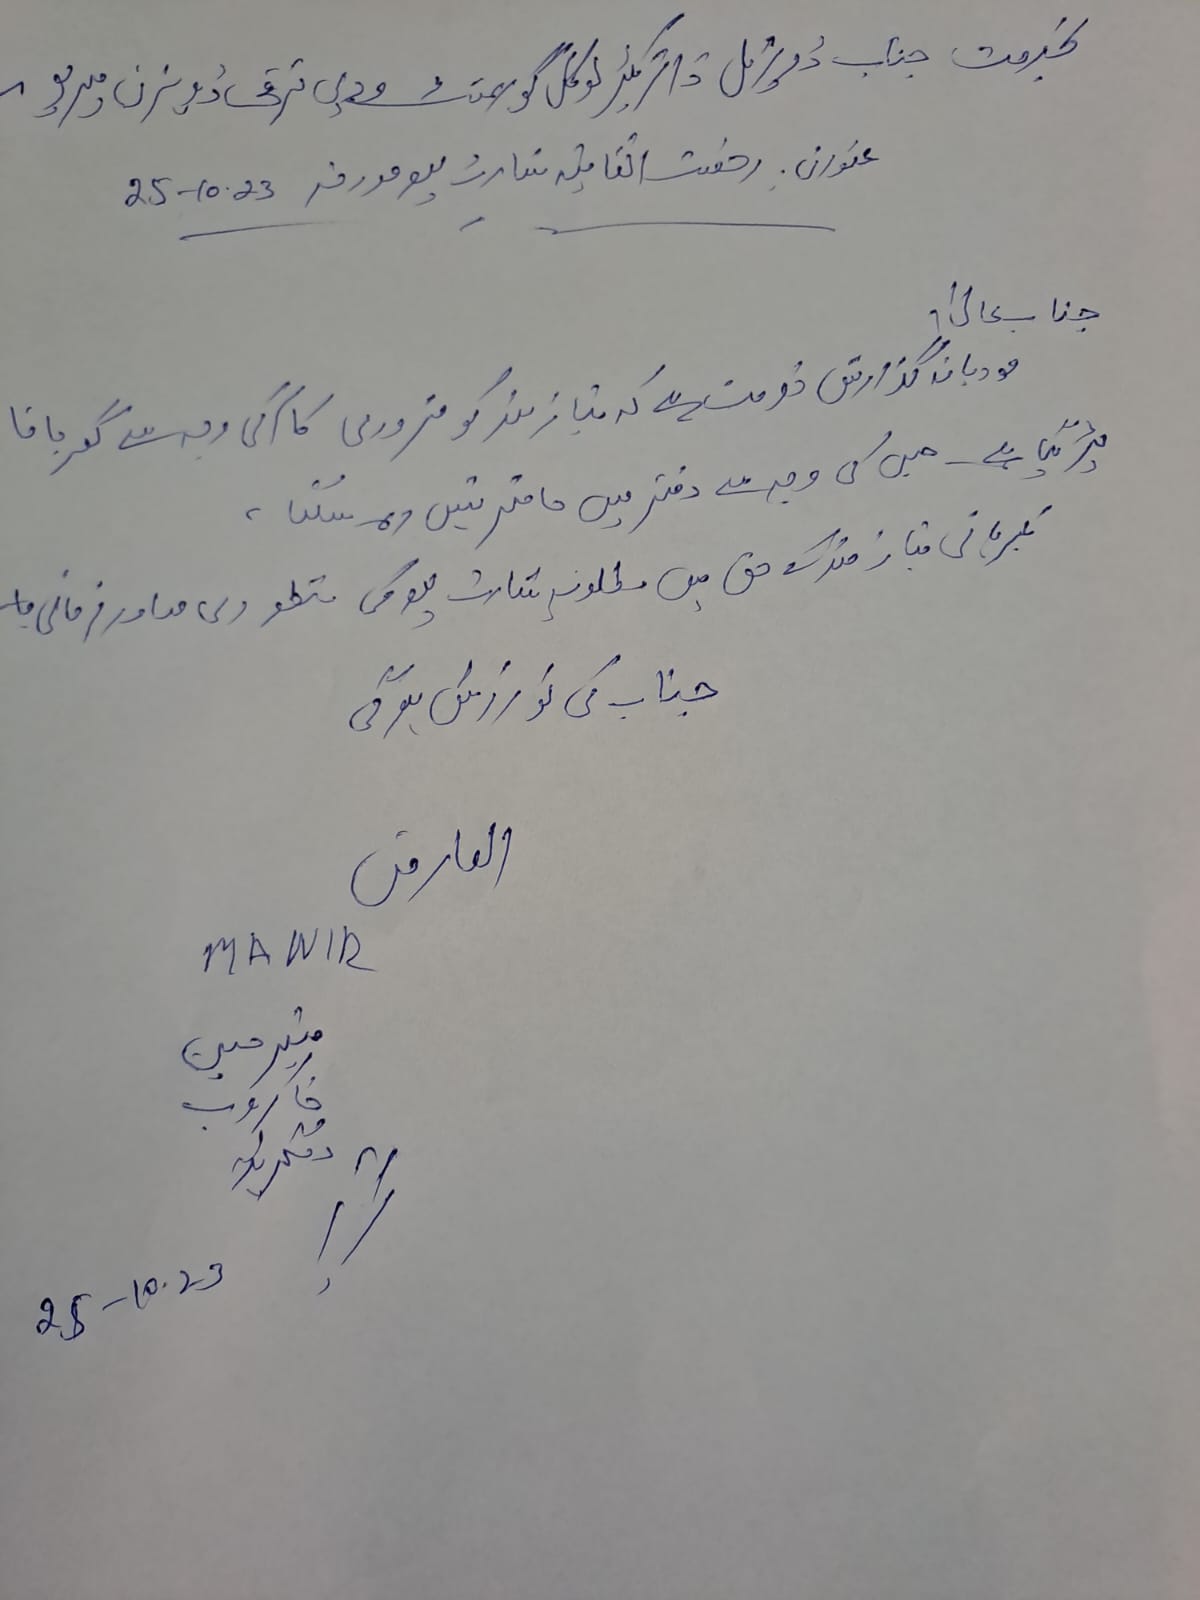 بخدمت جناب ڈویژنل ڈائریکٹر لوکل گورنمنٹ و دیہی ترقی ڈویژن میرپور
عنوان: رخصت اتفاقیہ شارٹ لیو مورخہ 25-10-23
جناب عالیٰ!
مودبانہ گذارش خدمت ہے کہ نیاز مند کو ضروری کام کی وجہ سے گھر جانا
پڑ گیا ہے۔ جس کی وجہ سے دفتر میں حاضر نہیں رہ سکتا،
مہربانی نیاز مند کے حق میں مطلوبہ شارٹ لیو کی منظوری صادر فرمائی جائے
جناب کی نوازش ہو گی
العارض
MANIR
منیر حسین
خاکروب
دفتر ہذا
25-10-23